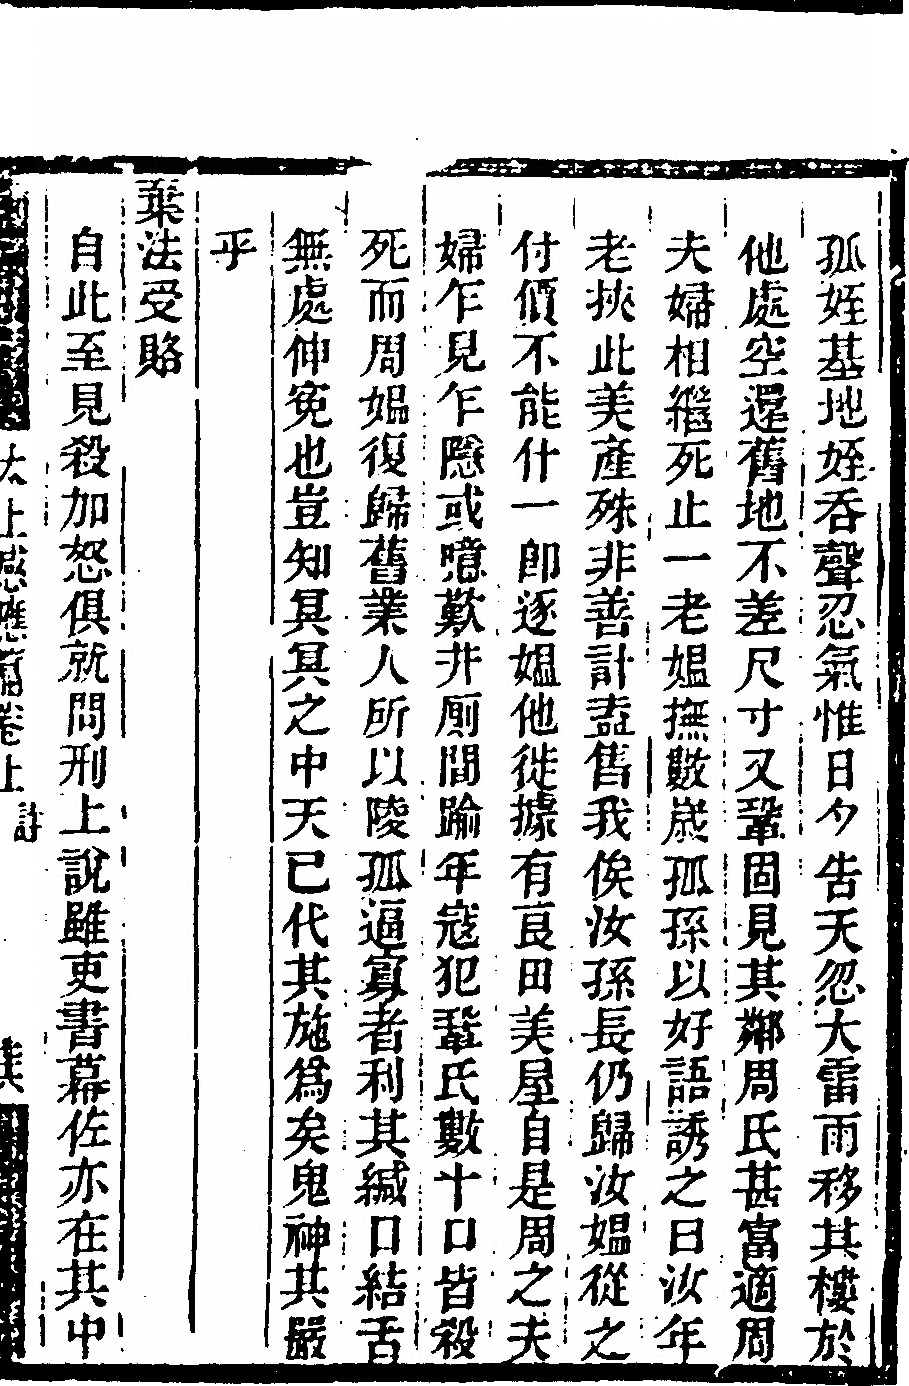 孤姪基地姪吞聲忍氣惟日夕告天忽大雷雨移其樓於
他處空還舊地不差尺寸又鞏固見其鄰周氏甚富適周
夫婦相繼死止一老媼撫數歲孤孫以好語誘之曰汝年
老挾此美產殊非善計盍售我俟汝孫長仍歸汝媼從之
付價不能什一卽逐媼他徙據有良田美屋自是周之夫
婦乍見乍隱或噫歎井厠間踰年寇犯鞏氏數十口皆殺
死而周媼復歸舊業人所以陵孤逼寡者利其緘口結舌
無處伸寃也豈知冥冥之中天已代其施爲矣鬼神其嚴
乎
棄法受賂
自此至見殺加怒俱就問刑上說雖吏書幕佐亦在其中
太上感應篇卷上 註